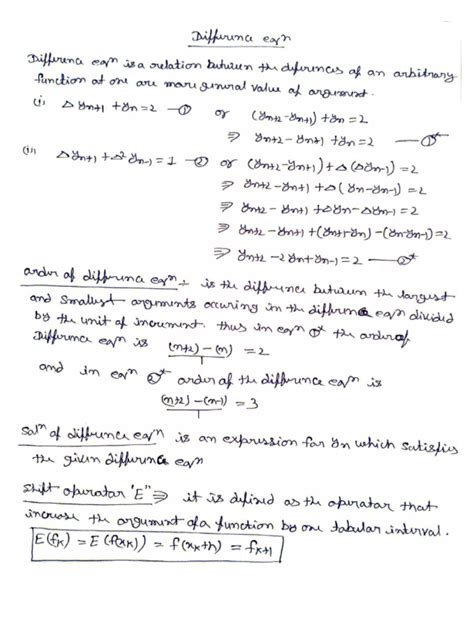 Difference eqn
Difference eqn is a relation between the diferences of an arbitrary
function at one are more general value of argument.
(i) Δyn+1 + yn = 2 —① or (yn+2 - yn+1) + yn = 2
⇒ yn+2 - yn+1 + yn = 2 —①*
(ii) Δyn+1 + Δ²yn-1 = 1 —② or (yn+2 - yn+1) + Δ(Δyn-1) = 2
⇒ yn+2 - yn+1 + Δ(yn - yn-1) = 2
⇒ yn+2 - yn+1 + Δyn - Δyn-1 = 2
⇒ yn+2 - yn+1 + (yn+1 - yn) - (yn - yn-1) = 2
⇒ yn+2 - 2yn + yn-1 = 2 —②*
order of difference eqn :- is the difference between the largest
and smallest arguments occuring in the difference eqn divided
by the unit of increment. thus in eqn ①* the order of
Difference eqn is (n+2) - (n) / 1 = 2
and in eqn ②* order of the difference eqn is
(n+2) - (n-1) / 1 = 3
Soln of difference eqn is an expression for yn which satisfies
the given difference eqn
Shift operator "E" ⇒ it is defined as the operator that
increase the argument of a function by one tabular interval.
E(fk) = E(f(xk)) = f(xk+h) = fk+1